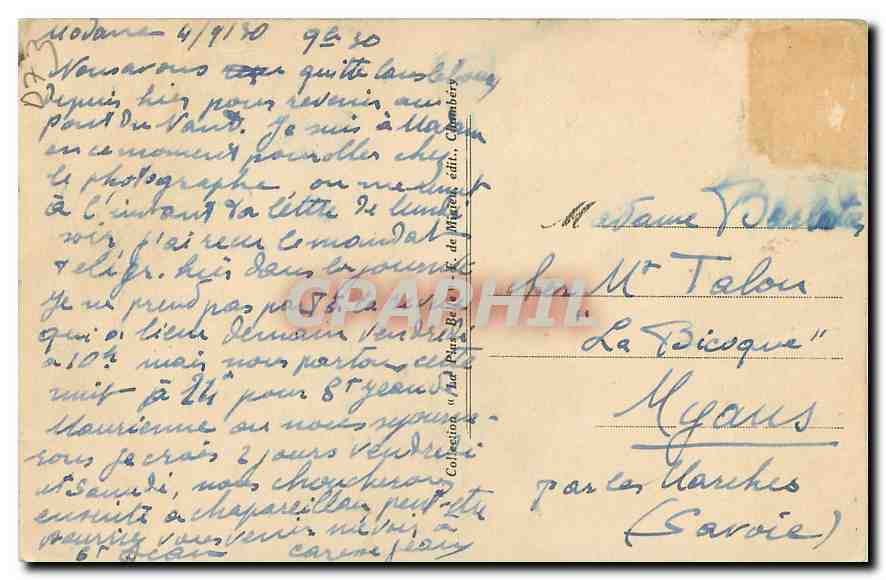 Modane 4/9/30 9h 30
Nous avons quitte Lanslebourg
depuis hier pour revenir au
pont du Vant. Je suis à Modane
en ce moment pour aller chez
le photographe on me remit
à l'instant ta lettre de lundi
soir, j'ai reçu le mandat
telégr. hier dans la journée
Je ne prend pas part à la
qui a lieu demain vendredi
a 10h mais nous partons cette
nuit à 24h pour St Jean de
Maurienne ou nous sejourne-
rons je crois 2 jours vendredi
et Samedi, nous
ensuite a chapareillan peut-être
pourriez vous venir me voir à
St Jean caresse Jean
D73
Collection " La Plus Belle " - E. de Mizieu, édit., Chambéry
CARAPHIL
Madame
chez Mr Talon
"La Bicoque"
Myans
par les Marches
(Savoie)